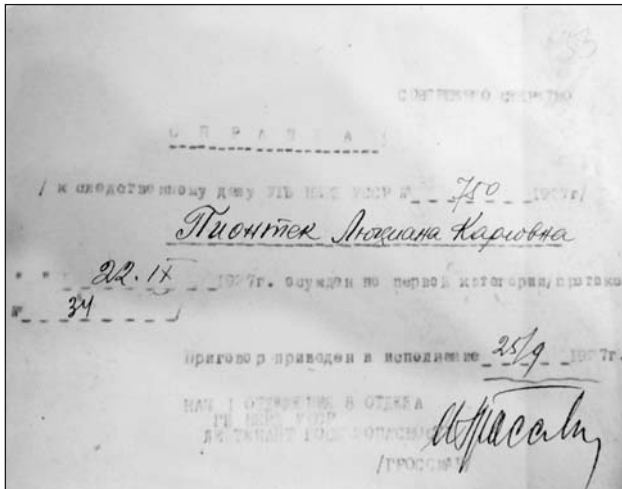 СОВЕРШЕННО СЕКРЕТНО
С П Р А В К А
/ к следственному делу УГБ НКВД УССР № 750 1937г/
Пионтек Люциана Каровна
" " 22.IX 1937г. осужден по первой категории/протоко
№ 34 /
Приговор приведен в исполнение 25/9 1937г.
НАЧ 1 ОТДЕЛЕНИЯ 8 ОТДЕЛА
НКВД УССР
ЛЕЙТЕНАНТ ГОСБЕЗОПАСНОСТИ
/ГРОССМАН/